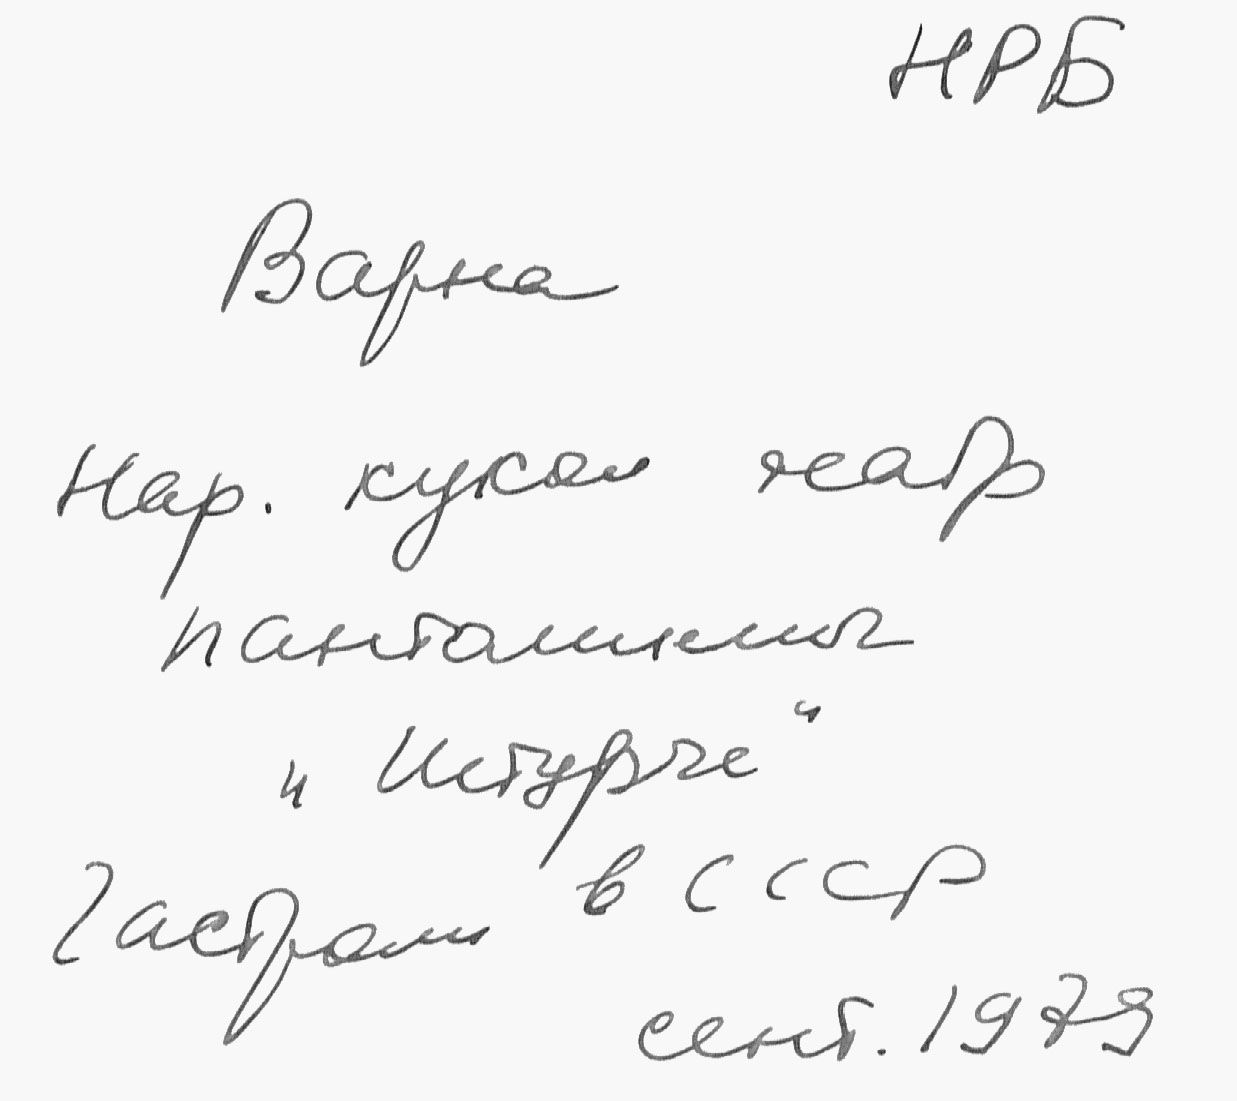 НРБ
Варна
Нар. кукол театр
пантомимы
„Щтурче“
Гастроли в СССР
сент. 1979